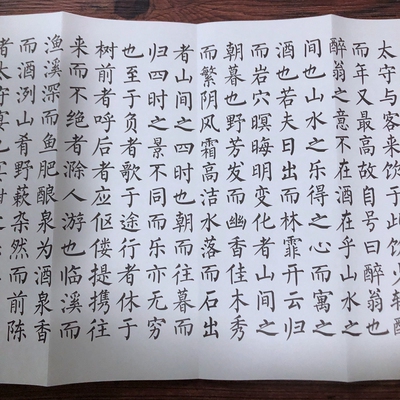 太守与客来饮于此饮少辄醉
而年又最高故自号曰醉翁也
醉翁之意不在酒在乎山水之
间也山水之乐得之心而寓之
酒也若夫日出而林霏开云归
而岩穴暝晦明变化者山间之
朝暮也野芳发而幽香佳木秀
而繁阴风霜高洁水落而石出
者山间之四时也朝而往暮而
归四时之景不同而乐亦无穷
也至于负者歌于途行者休于
树前者呼后者应伛偻提携往
来而不绝者滁人游也临溪而
渔溪深而鱼肥酿泉为酒泉香
而酒洌山肴野蔌杂然而前陈
者太守宴也